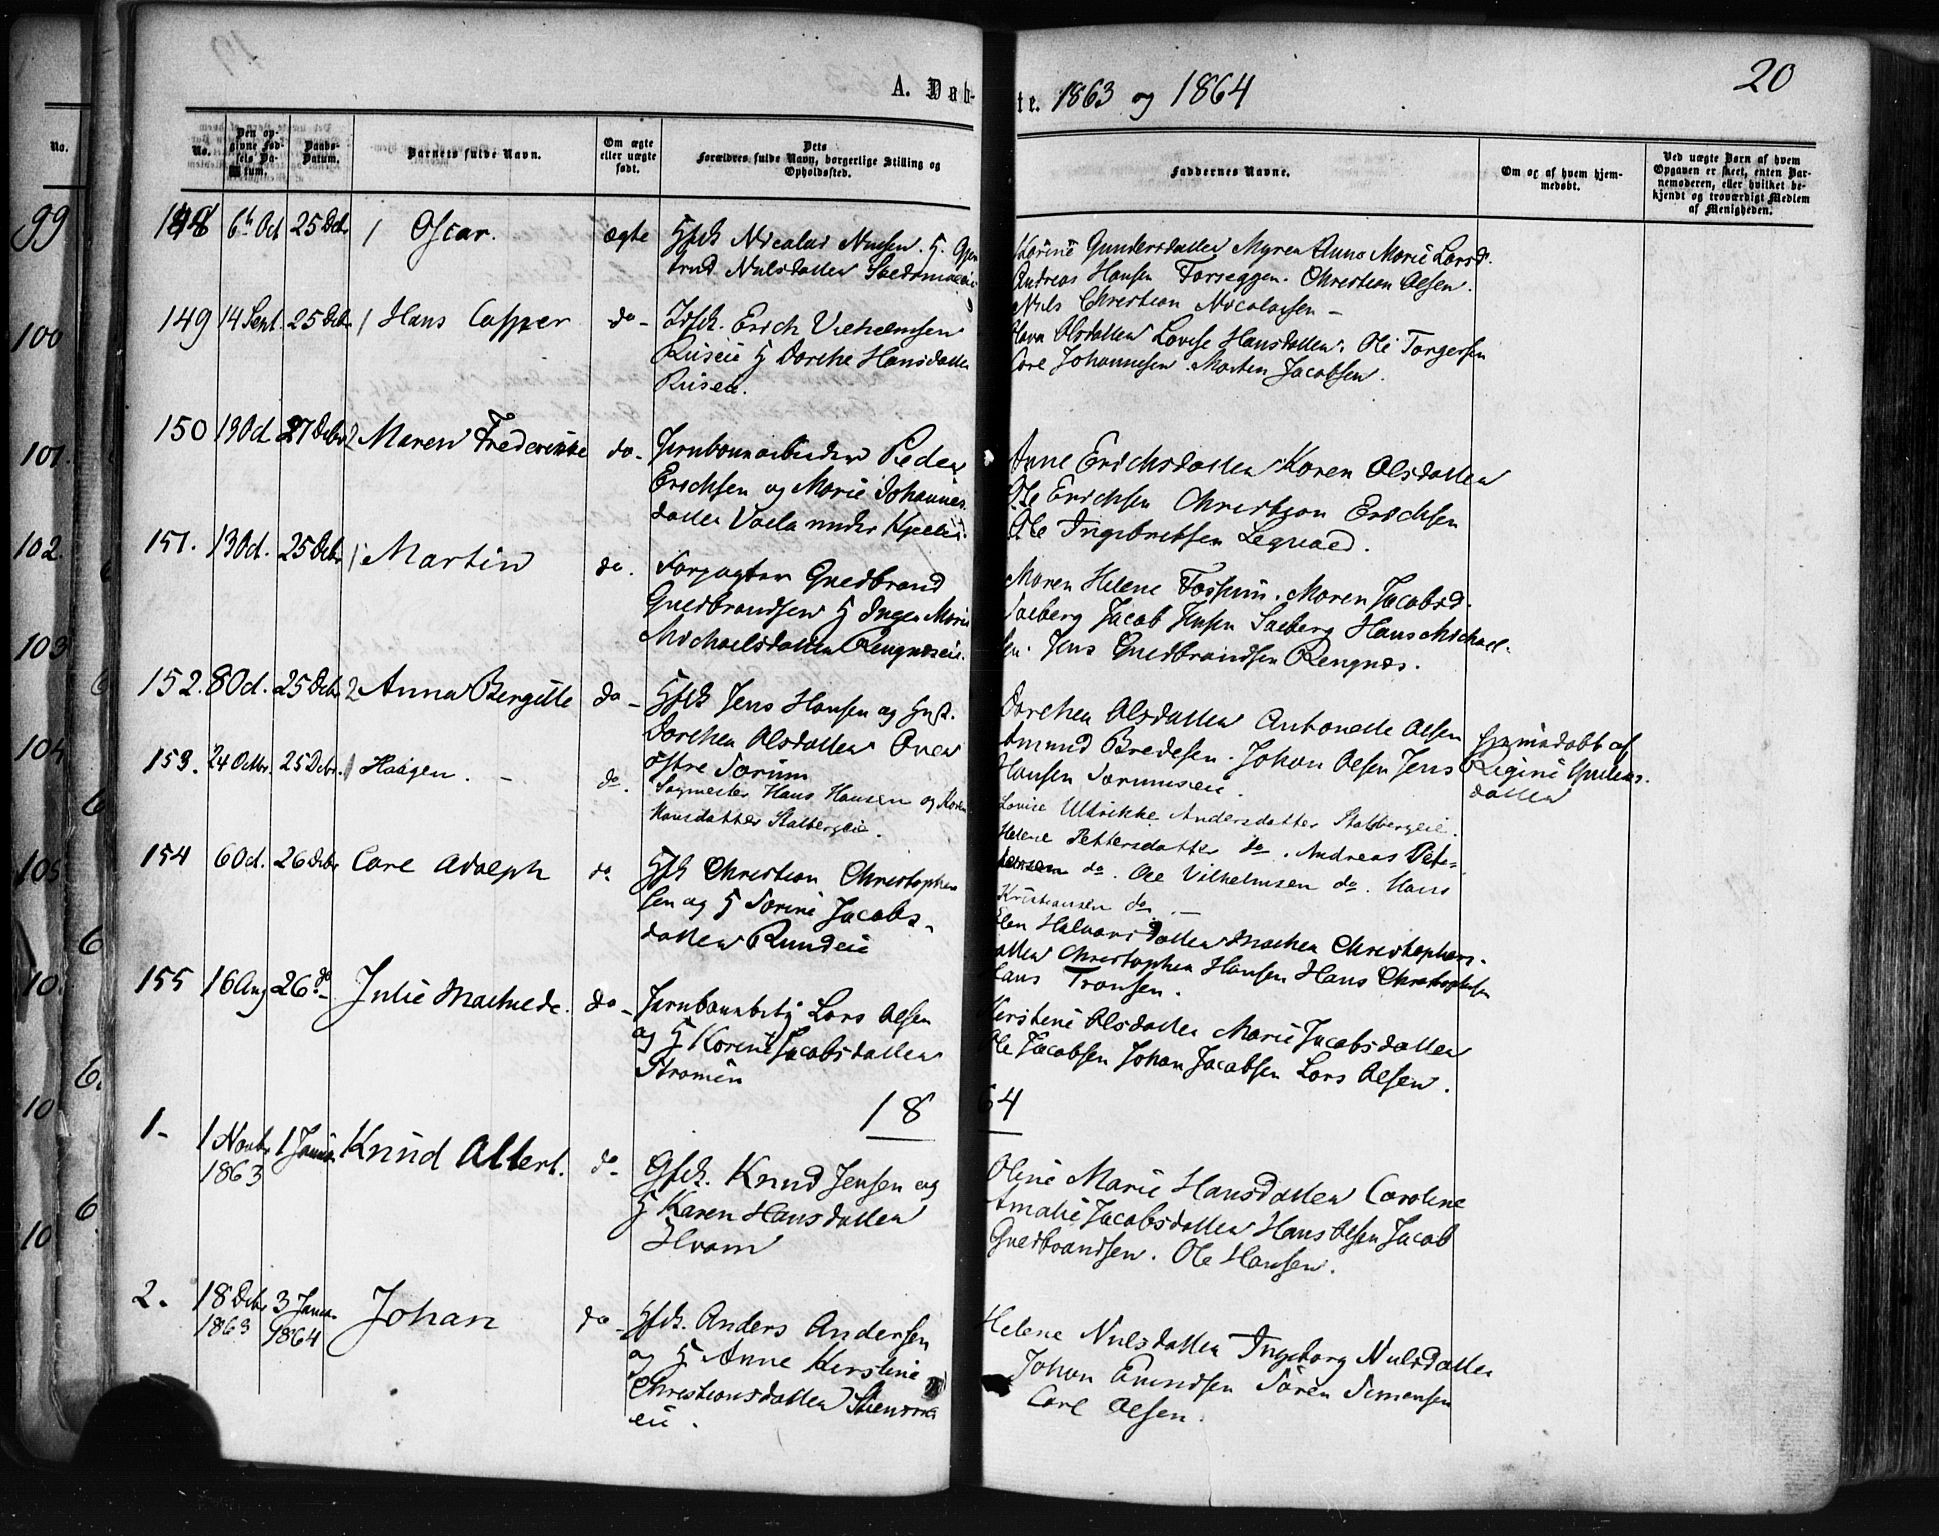 A. Døb-
te. 1863 og 1864
20
No.
Den op-
givne Fød-
sels Da-
tum.
Daabs-
Datum.
Barnets fulde Navn.
Om ægte
eller uægte
født.
Dets
Forældres fulde Navn, borgerlige Stilling og
Opholdssted.
Faddernes Navne.
Om og af hvem hjem-
medøbt.
Ved uægte Børn af hvem
Opgaven er skeet, enten Bar-
nemoderen, eller hvilket be-
kjendt og troværdigt Medlem
af Menigheden.
No.
99
100
101.
102.
103
104
105
10
10
10
148 6te Oct 25 Dcbr 1 Oscar. ægte
Gfsk Nicolai Nielsen. H. Gjer
trud Nielsdatter
Karine Gundersdatter Myren Anne Marie Larsd.
Andreas Hansen Forseggen. Christian Olsen.
Niels Christian Nicolaisen -
149 14 Sept. 25 Dcbr 1 Hans Casper do-
Idsk. Erich Vilhelmsen
Riiseie H Dorthe Hansdatter
Riiseie.
Olava Olsdatter Lovise Hansdatter. Ole Torgersen
Carl Johannesen. Morten Jacobsen.
150 19 Oct 27 Decbr 2 Maren Frederikke do-
Jernbanearbeider Peder
Erichsen og Marie Johannes
datter Vaela under Kjelle.
Anne Erichsdatter Karen Olsdatter
Ole Erichsen Christian Erichsen
Ole Ingebretsen Legvold.
151. 13 Oct. 25 Dcbr 1 Martin do.
Forpagter Guldbrand
Guldbrandsen H Inger Marie
Michaelsdatter Rengnæseie.
Maren Helene Fossum. Maren Jacobsd.
Solberg Jacob Jensen Solberg Hans Michael-
sen. Jens Guldbrandsen Rengnæs.
152. 8 Oct. 25 Dcbr 2 Anna Bergitte do-
Gfsk Jens Hansen og Hust.
Dorthea Olsdatter Oven
østre Sørum
Dorthea Olsdatter Antonette Olsen
Amund Bredesen. Johan Olsen Jens
Hansen Sørumseie.
Hjemmedøbt af
Regine
datter
153. 24 Octbr. 25 Dcbr. 1 Haagen. - do.
Sagmester Hans Hansen og Karen
Hansdatter Stalbergeie.
Lovise Uldrikke Andersdatter Stalbergeie.
Helene Pettersdatter do. Andreas Pet-
tersen do. Ole Vilhelmsen do. Hans
Kristiansen do. -
154 6 Oct. 26 Dcbr Carl Adolph do.
Gfsk Christian Christophers
sen og H Sørine Jacobs-
datter Rundeie
Elen Halvorsdatter Mathea Christophers-
datter Christopher Hansen Hans Christophersen
Hans Tronsen.
155 16 Aug 26 do Julie Mathilde. do-
Jernbanebetj Lars Olsen
og H Karine Jacobsdatter
Strømen
Kerstine Olsdatter Marie Jacobsdatter
Ole Jacobsen Johan Jacobsen Lars Olsen.
18 64
1- 1 Novbr 1863 1 Januar Knud Albert. do-
Gfsk. Knud Jensen og
H Karen Hansdatter
Hvam
Oline Marie Hansdatter Caroline
Amalie Jacobsdatter Hans Olsen Jacob
Guldbrandsen. Ole Hansen.
2. 18 Dcbr 1863 3 Januar 1864 Johan do-
Gfsk. Anders Andersen
og H Anne Kerstine
Christiansdatter
eie.
Helene Nielsdatter Ingeborg Nielsdatter
Johan Emundsen Søren Simensen
Carl Olsen.